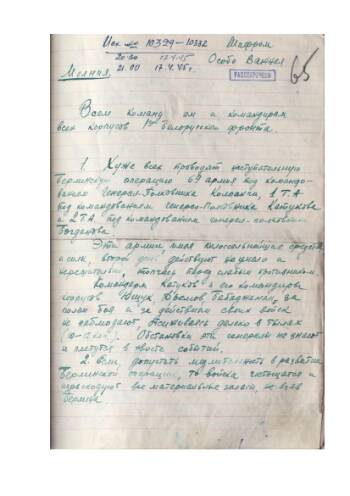 Исх № 10329-10332 Шифром
20.50 17.4.45
21.00 17.4.45г. Особо Важная
Молния. РАССЕКРЕЧЕНО 65
Всем команд. ом и командирам
всех корпусов 1го белорусского фронта.
1. Хуже всех проводят наступательную
Берлинскую операцию 69 армия под командо-
ванием Генерал-Полковника Колпакчи, 1 Т.А.
под командованием генерал-полковника Катукова
и 2 Т.А. под командованием генерал-полковника
Богданова.
Эти армии имея колоссальнейшие средства
и силы, второй день действуют неумело и
нерешительно, топчась перед слабым противником.
Командарм Катуков и его командиры
корпусов Ющук, Дремов, Бабаджанян, за
полем боя и за действием своих войск
не наблюдают, отсиживаясь далеко в тылах
. Обстановки эти генералы не знают
и плетутся в хвосте событий.
2. Если допустить медлительность в развитии
Берлинской операции, то войска истощатся и
израсходуют все материальные запасы, не взяв
Берлина